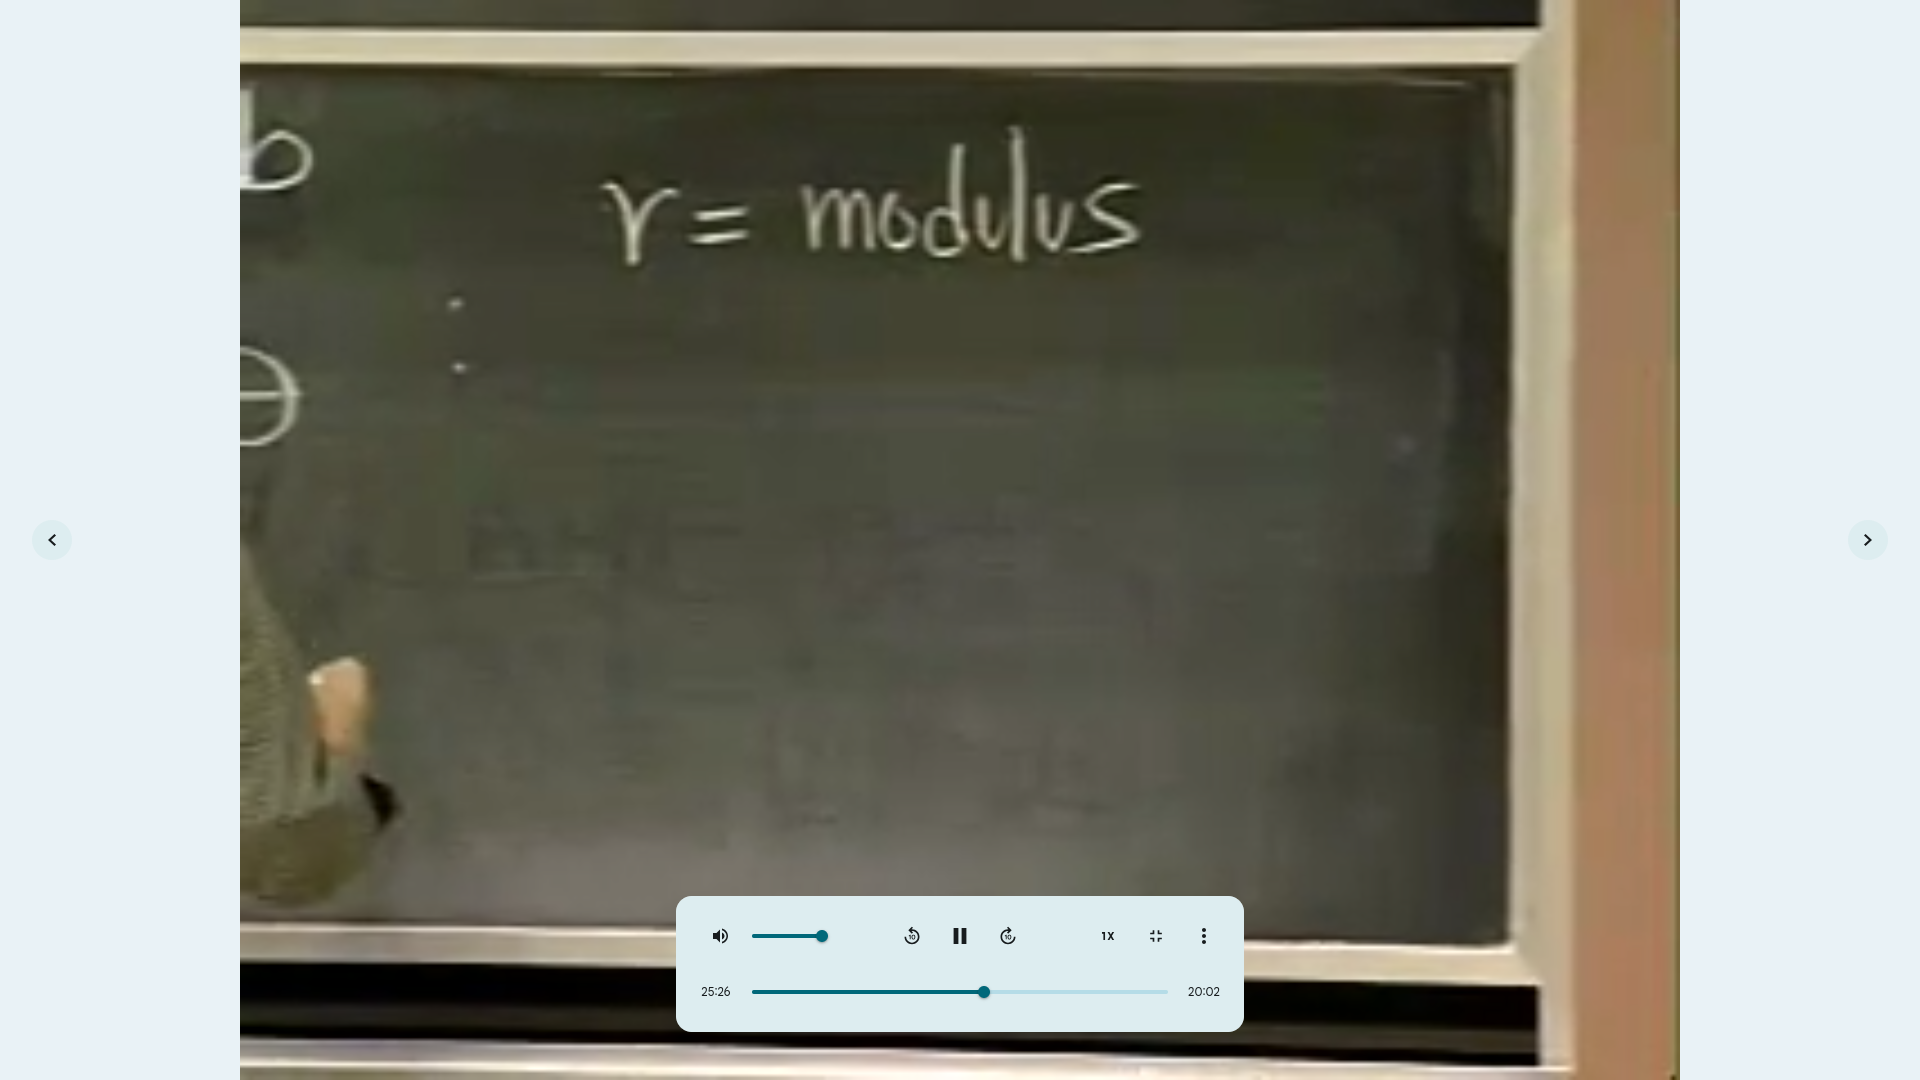 b
r = modulus
θ
1X
25:26
20:02